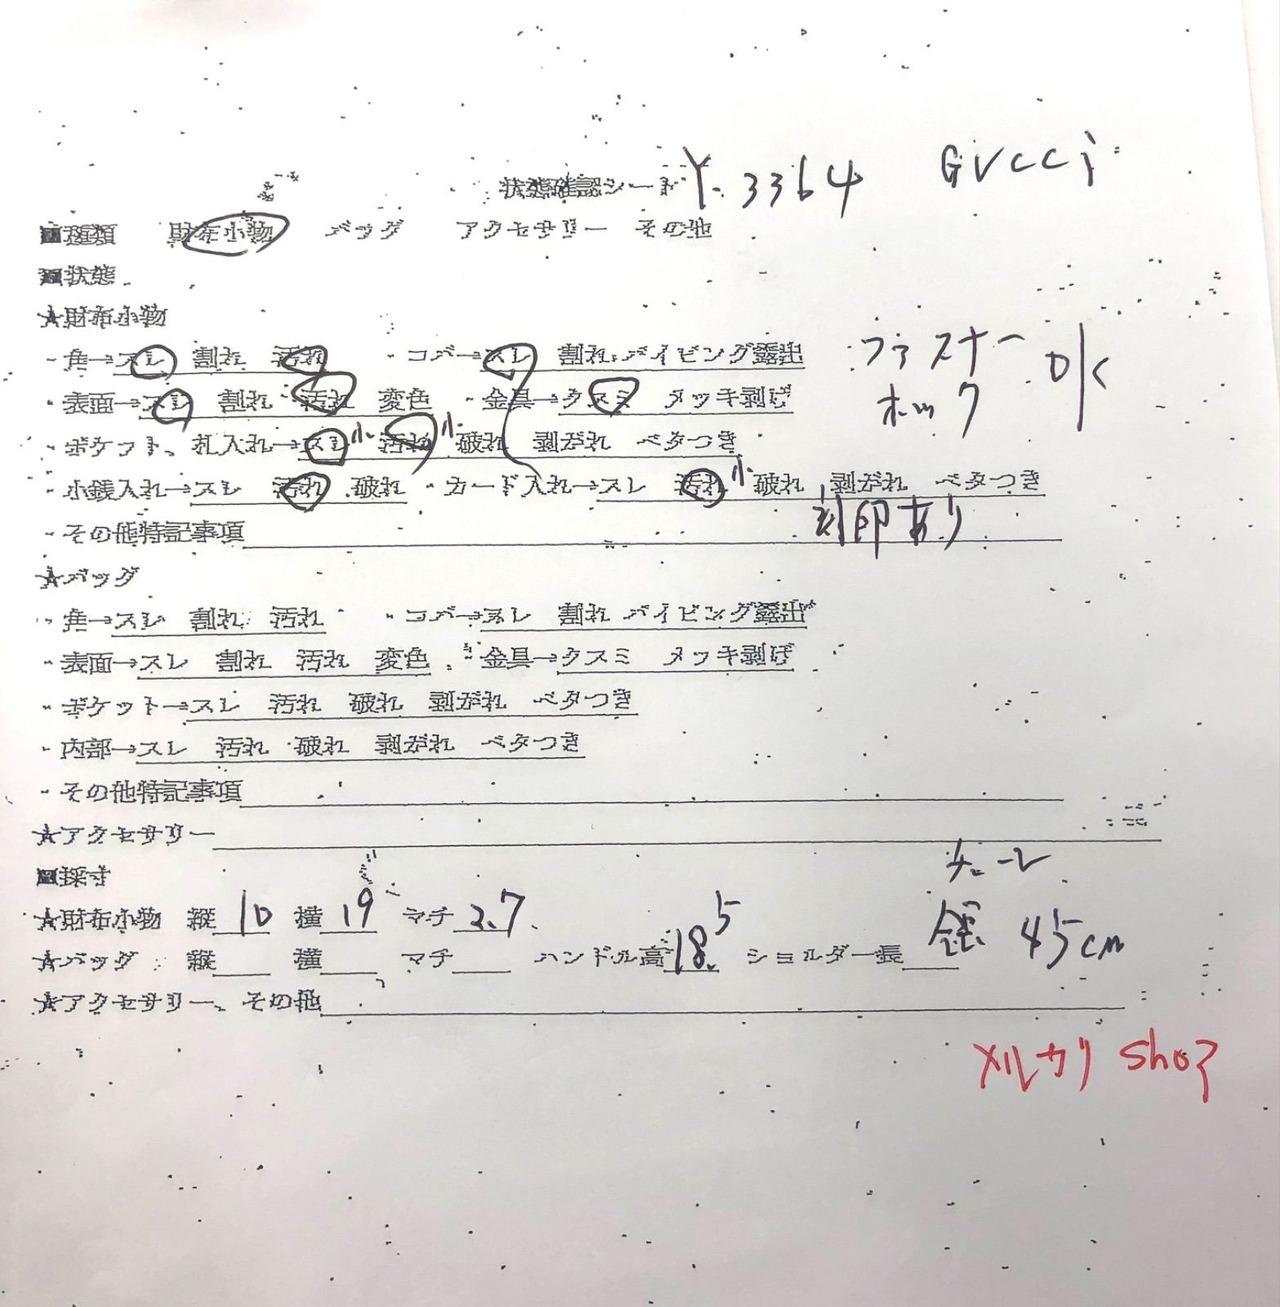 状態確認シート Y. 3364 GUCCI
■種類 財布小物 バッグ アクセサリー その他
■状態
★財布小物
・角→スレ 割れ 汚れ ・コバ→スレ 割れ パイピング露出 ファスナー OK
・表面→スレ 割れ 汚れ 変色 ・金具→クスミ メッキ剥げ ホック
・ポケット、札入れ→スレ小 汚れ小 破れ 剥がれ ベタつき
・小銭入れ→スレ 汚れ 破れ ・カード入れ→スレ 汚れ小 破れ 剥がれ ベタつき
・その他特記事項 刻印あり
★バッグ
・角→スレ 割れ 汚れ ・コバ→スレ 割れ パイピング露出
・表面→スレ 割れ 汚れ 変色 ・金具→クスミ メッキ剥げ
・ポケット→スレ 汚れ 破れ 剥がれ ベタつき
・内部→スレ 汚れ 破れ 剥がれ ベタつき
・その他特記事項
★アクセサリー
■採寸
★財布小物 縦 10 横 19 マチ 2.7
★バッグ 縦 横 マチ ハンドル高 18.5 ショルダー長 45cm
★アクセサリー、その他
メルカリ Shop